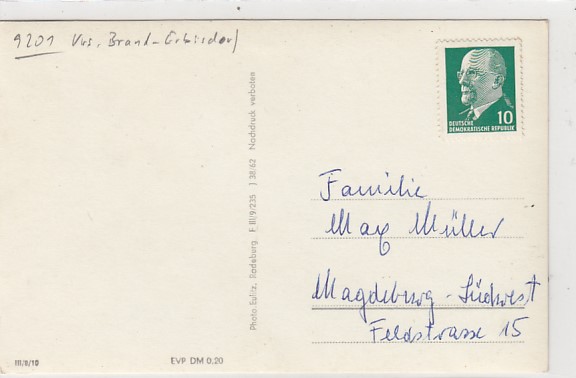 9201 Krs. Brand-Erbisdorf
10
DEUTSCHE
DEMOKRATISCHE REPUBLIK
Photo-Eulitz, Radeburg. F III/9/235 J 38/62 Nachdruck verboten
Familie
Max Müller
Magdeburg-Südwest
Feldstrasse 15
III/8/10
EVP DM 0,20